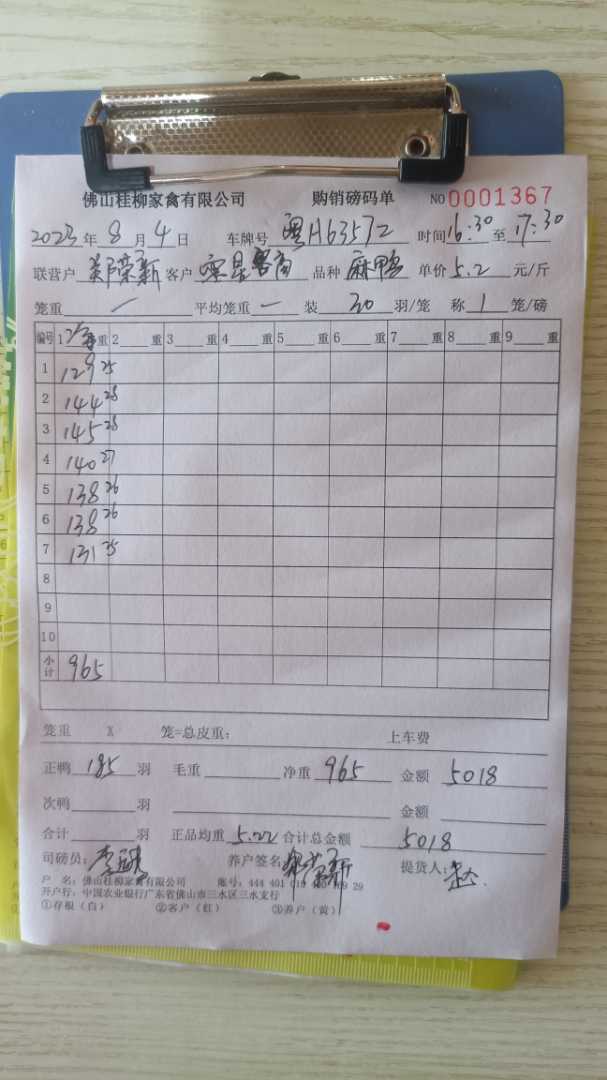 佛山桂柳家禽有限公司 购销磅码单 NO 0001367
2023年 8月 4日 车牌号 粤H63572 时间 16:30 至 17:30
联营户 荣新 客户 品种 麻鸭 单价 5.2 元/斤
笼重 / 平均笼重 一 装 30 羽/笼 称 1 笼/磅
编号 1 净重 2 重 3 重 4 重 5 重 6 重 7 重 8 重 9 重
1 129 25
2 144 28
3 145 28
4 140 27
5 138 26
6 138 26
7 131 25
8
9
10
小计 965
笼重 X 笼=总皮重: 上车费
正鸭 185 羽 毛重 净重 965 金额 5018
次鸭 羽 金额
合计 羽 正品均重 5.22 合计总金额 5018
司磅员: 李 养户签名 新 提货人:
户 名: 佛山桂柳家禽有限公司 账号: 444 401 29
开户行: 中国农业银行广东省佛山市三水区三水支行
①存根(白) ②客户(红) ③养户(黄)